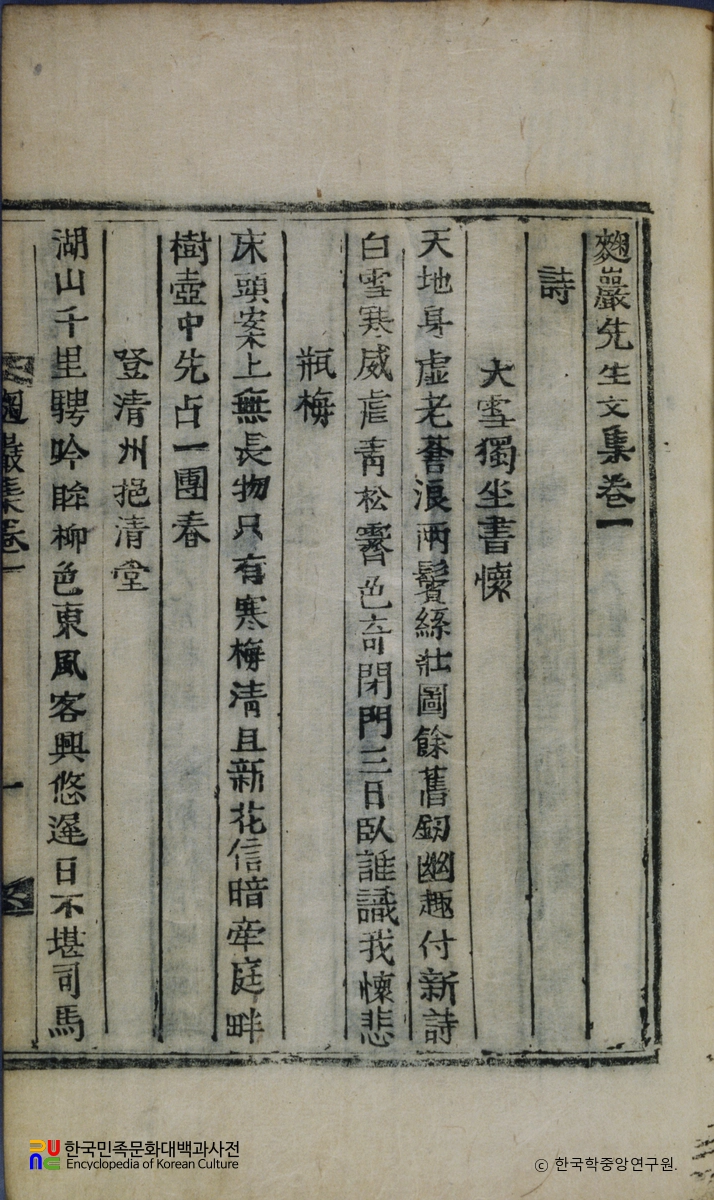 麴巖先生文集卷一
詩
大雪獨坐書懷
天地身虛老蒼浪兩鬢絲壯圖餘舊釰幽趣付新詩
白雪寒威虐靑松霽色奇閉門三日臥誰識我懷悲
甁梅
床頭案上無長物只有寒梅淸且新花信暗牽庭畔
樹壺中先占一團春
登淸州挹淸堂
湖山千里騁吟眸柳色東風客興悠遲日不堪司馬
麴巖集卷一
一
한국민족문화대백과사전
Encyclopedia of Korean Culture
© 한국학중앙연구원.